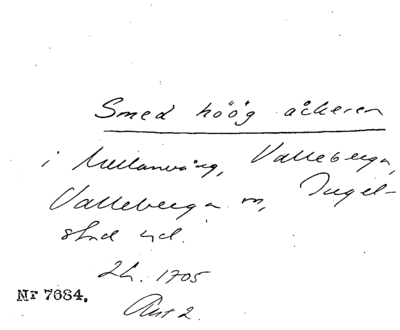 Smed höög åckeren
i Mellanvång, Valleberga,
Valleberga sn, Ingel-
stad hd.
Lh. 1705
Nr 7684.
Akt 2.